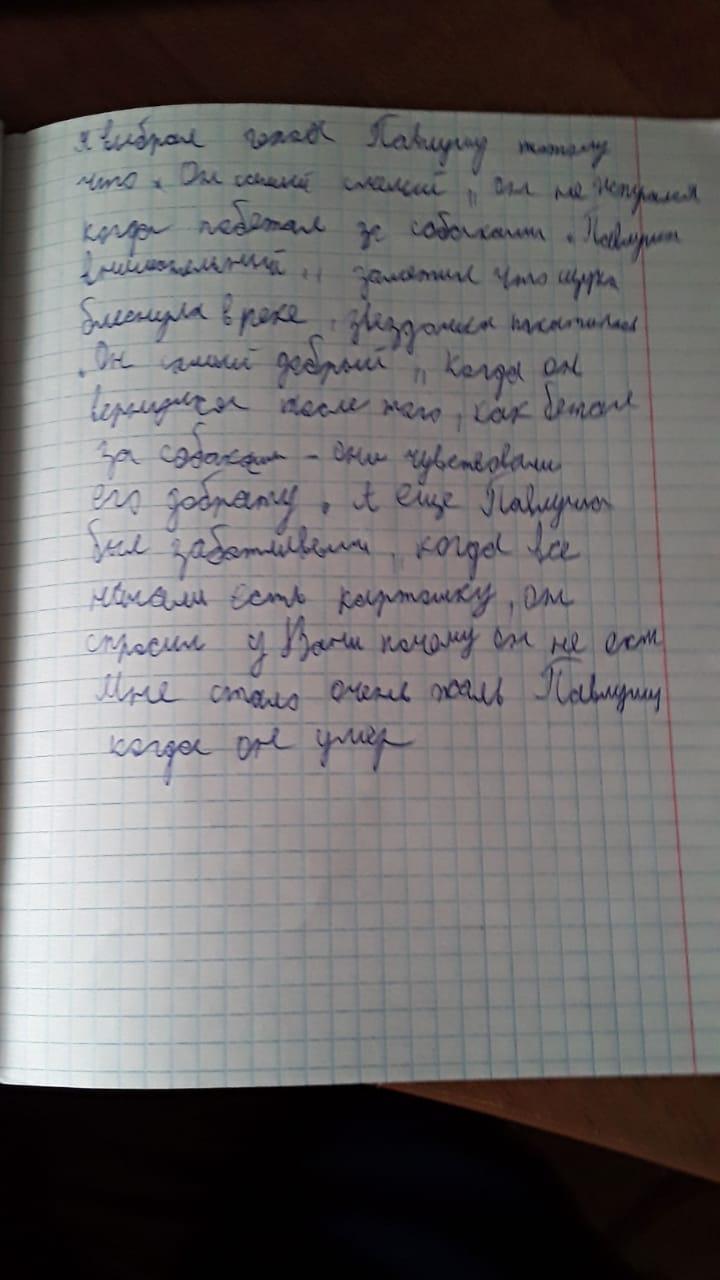 я выбрал Павлушу потому
что. Он самый смелый, он не испугался
когда побежал за собаками. Павлуша
внимательный, заметил что щука
блеснула в реке, звёздочка покатилась
. Он самый добрый, когда он
вернулся после того, как бегал
за собаками - они чувствовали
его доброту. А еще Павлуша
был заботливым, когда все
начали есть картошку, он
спросил у Вани почему он не ест
Мне стало очень жаль Павлушу
когда он умер